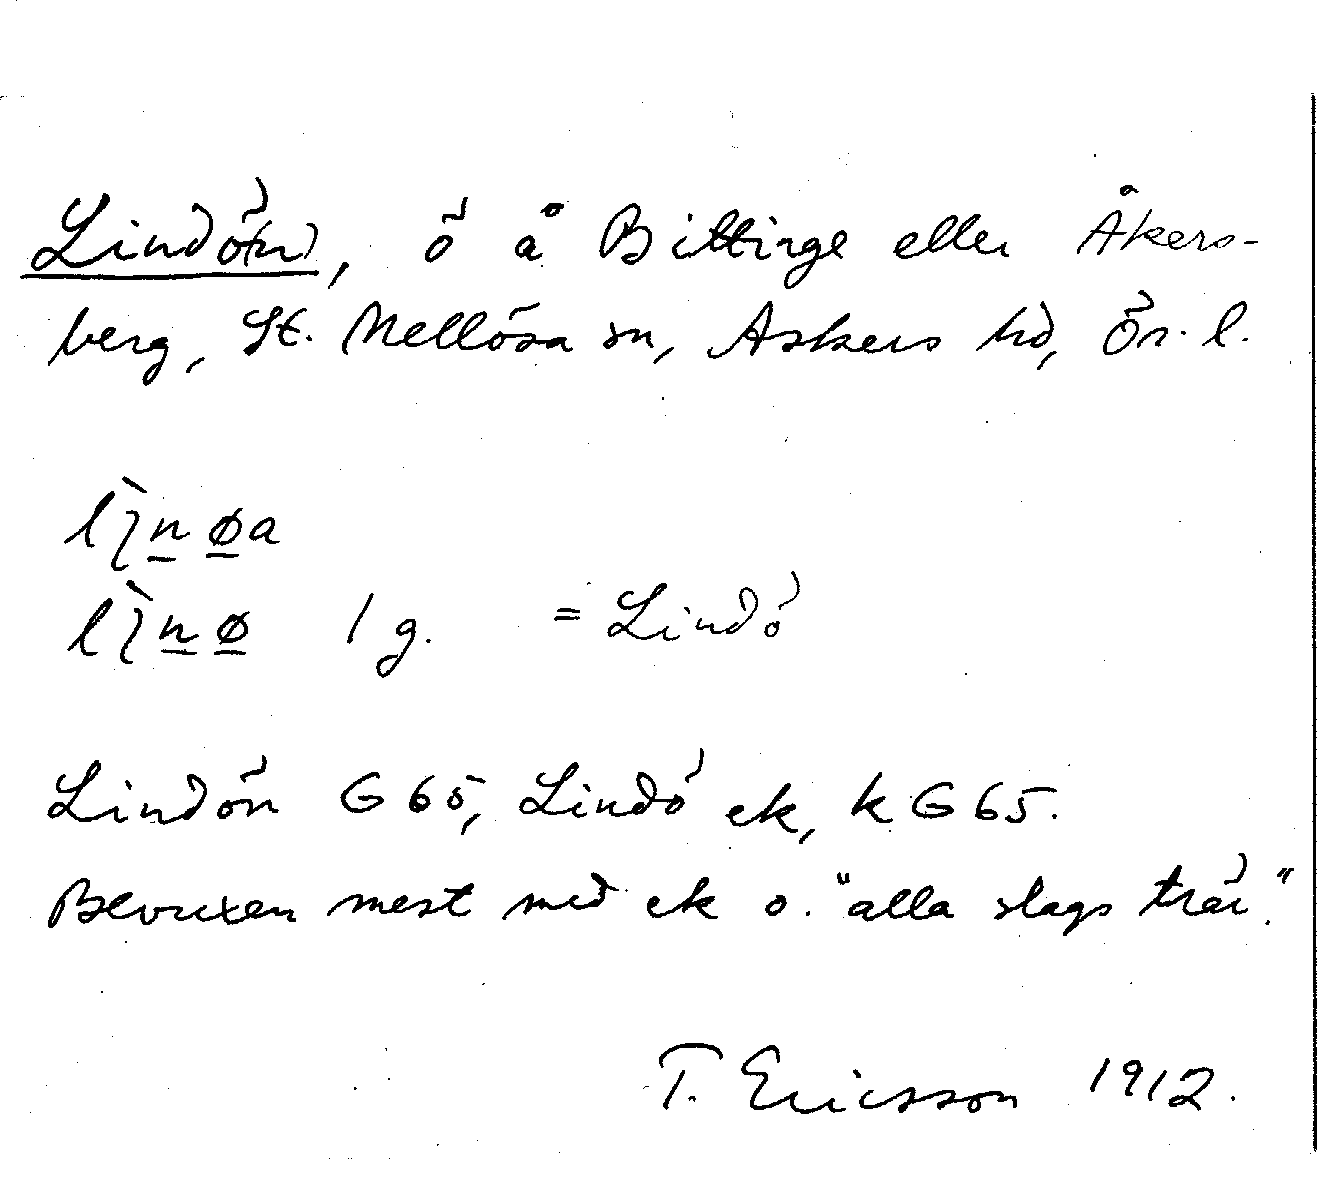 Lindö(n), ö å Bittinge eller Åkers-
berg, St. Mellösa sn, Askers hd, Ör. l.
lı̀n̲ø̲a
lı̀n̲ø̲ 1 g. = Lindö
Lindön G 65, Lindö ek, k G 65.
Bevuxen mest med ek o. "alla slags trär."
T. Ericsson 1912.